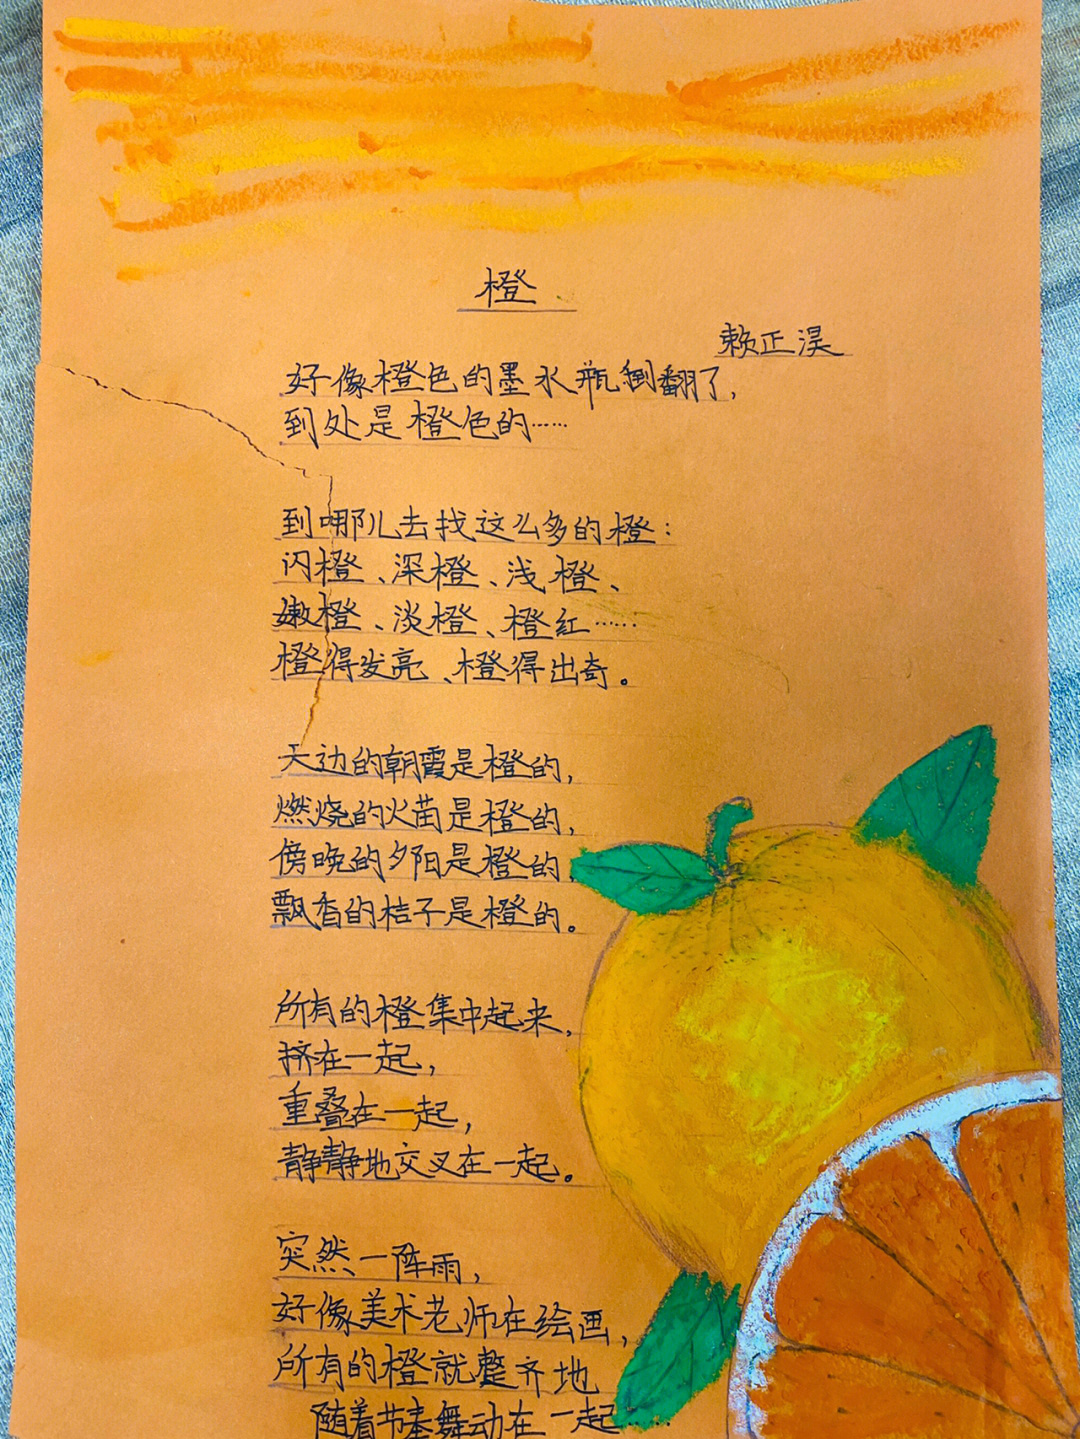 橙
赖正淏
好像橙色的墨水瓶倒翻了，
到处是橙色的……
到哪儿去找这么多的橙：
闪橙、深橙、浅橙、
嫩橙、淡橙、橙红……
橙得发亮、橙得出奇。
天边的朝霞是橙的，
燃烧的火苗是橙的，
傍晚的夕阳是橙的，
飘香的桔子是橙的。
所有的橙集中起来，
挤在一起，
重叠在一起，
静静地交叉在一起。
突然一阵雨，
好像美术老师在绘画，
所有的橙就整齐地
随着节奏舞动在一起……